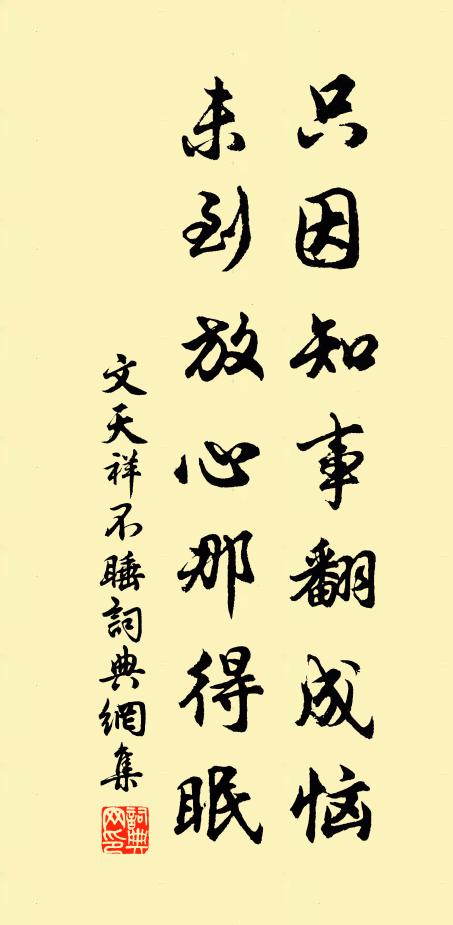 只因知事翻成恼
未到放心那得眠
文天祥不睡詞典網集
詞典
网印